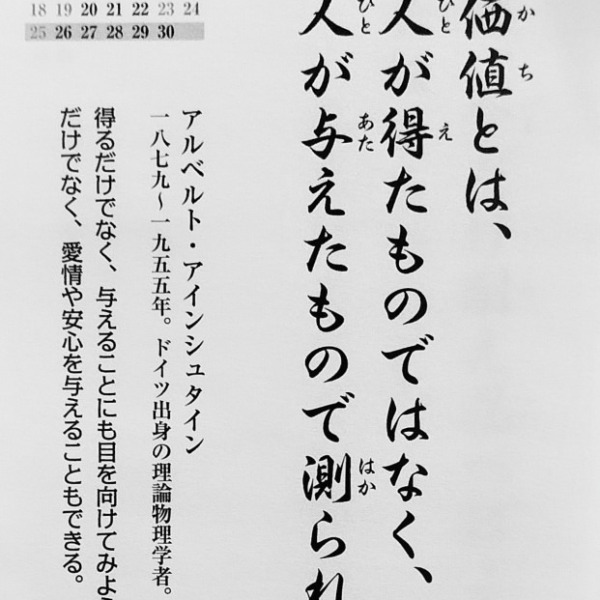 価値とは、
人が得たものではなく、
人が与えたもので測られ
アルベルト・アインシュタイン
一八七九〜一九五五年。ドイツ出身の理論物理学者。
得るだけでなく、与えることにも目を向けてみよう
だけでなく、愛情や安心を与えることもできる。
18 19 20 21 22 23 24
25 26 27 28 29 30